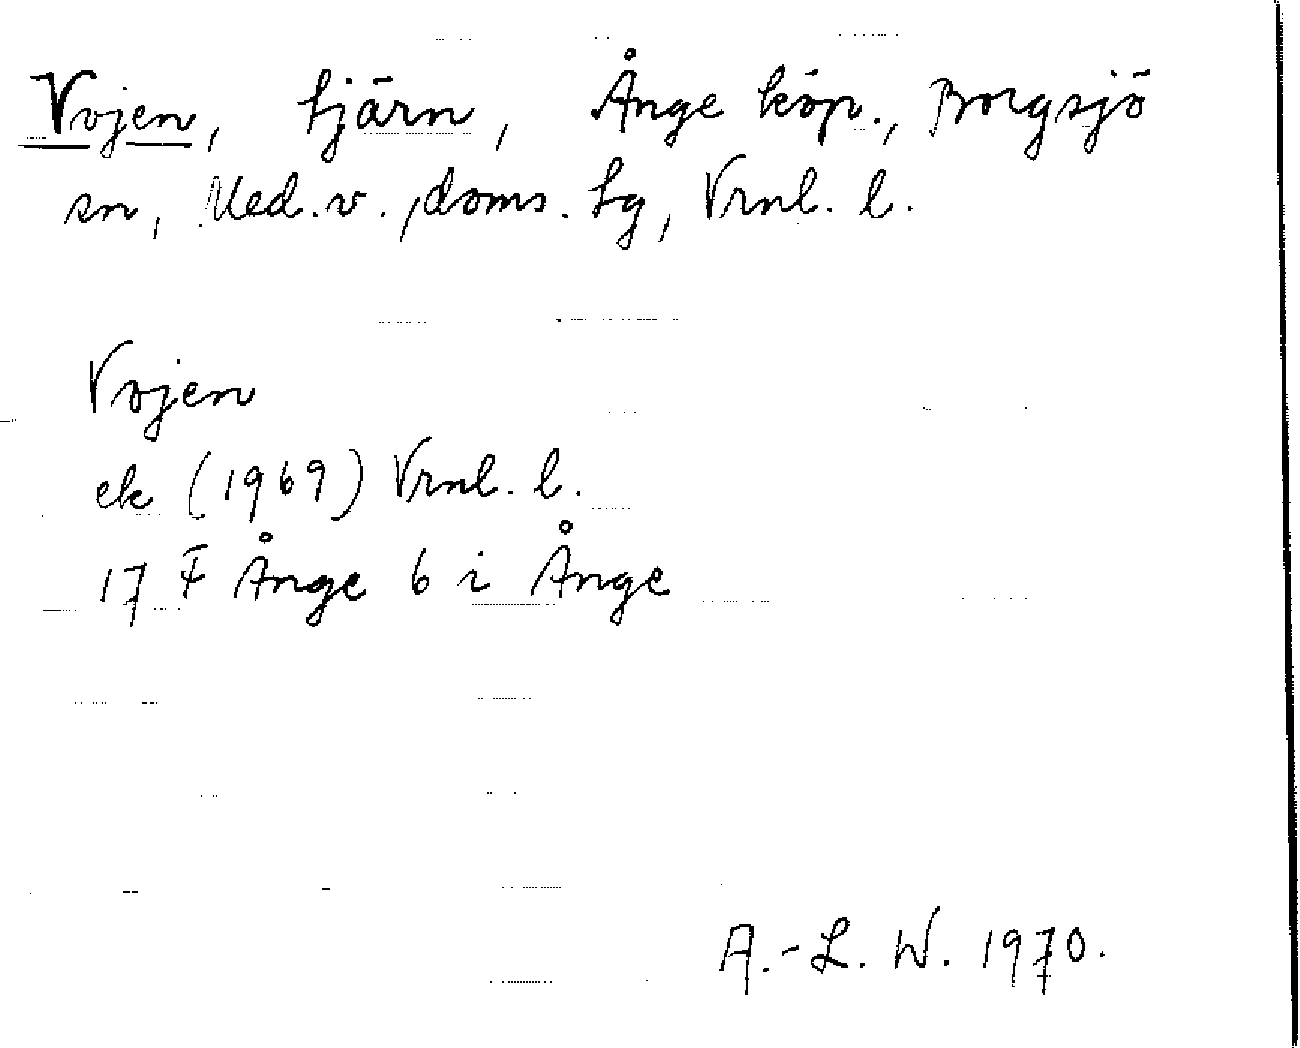 Vojen, tjärn, Ånge köp., Borgsjö
sn, Med. v., doms. tg, Vrnl. l.
Vojen
ek (1969) Vrnl. l.
17 F Ånge 6 i Ånge
A.-L. W. 1970.